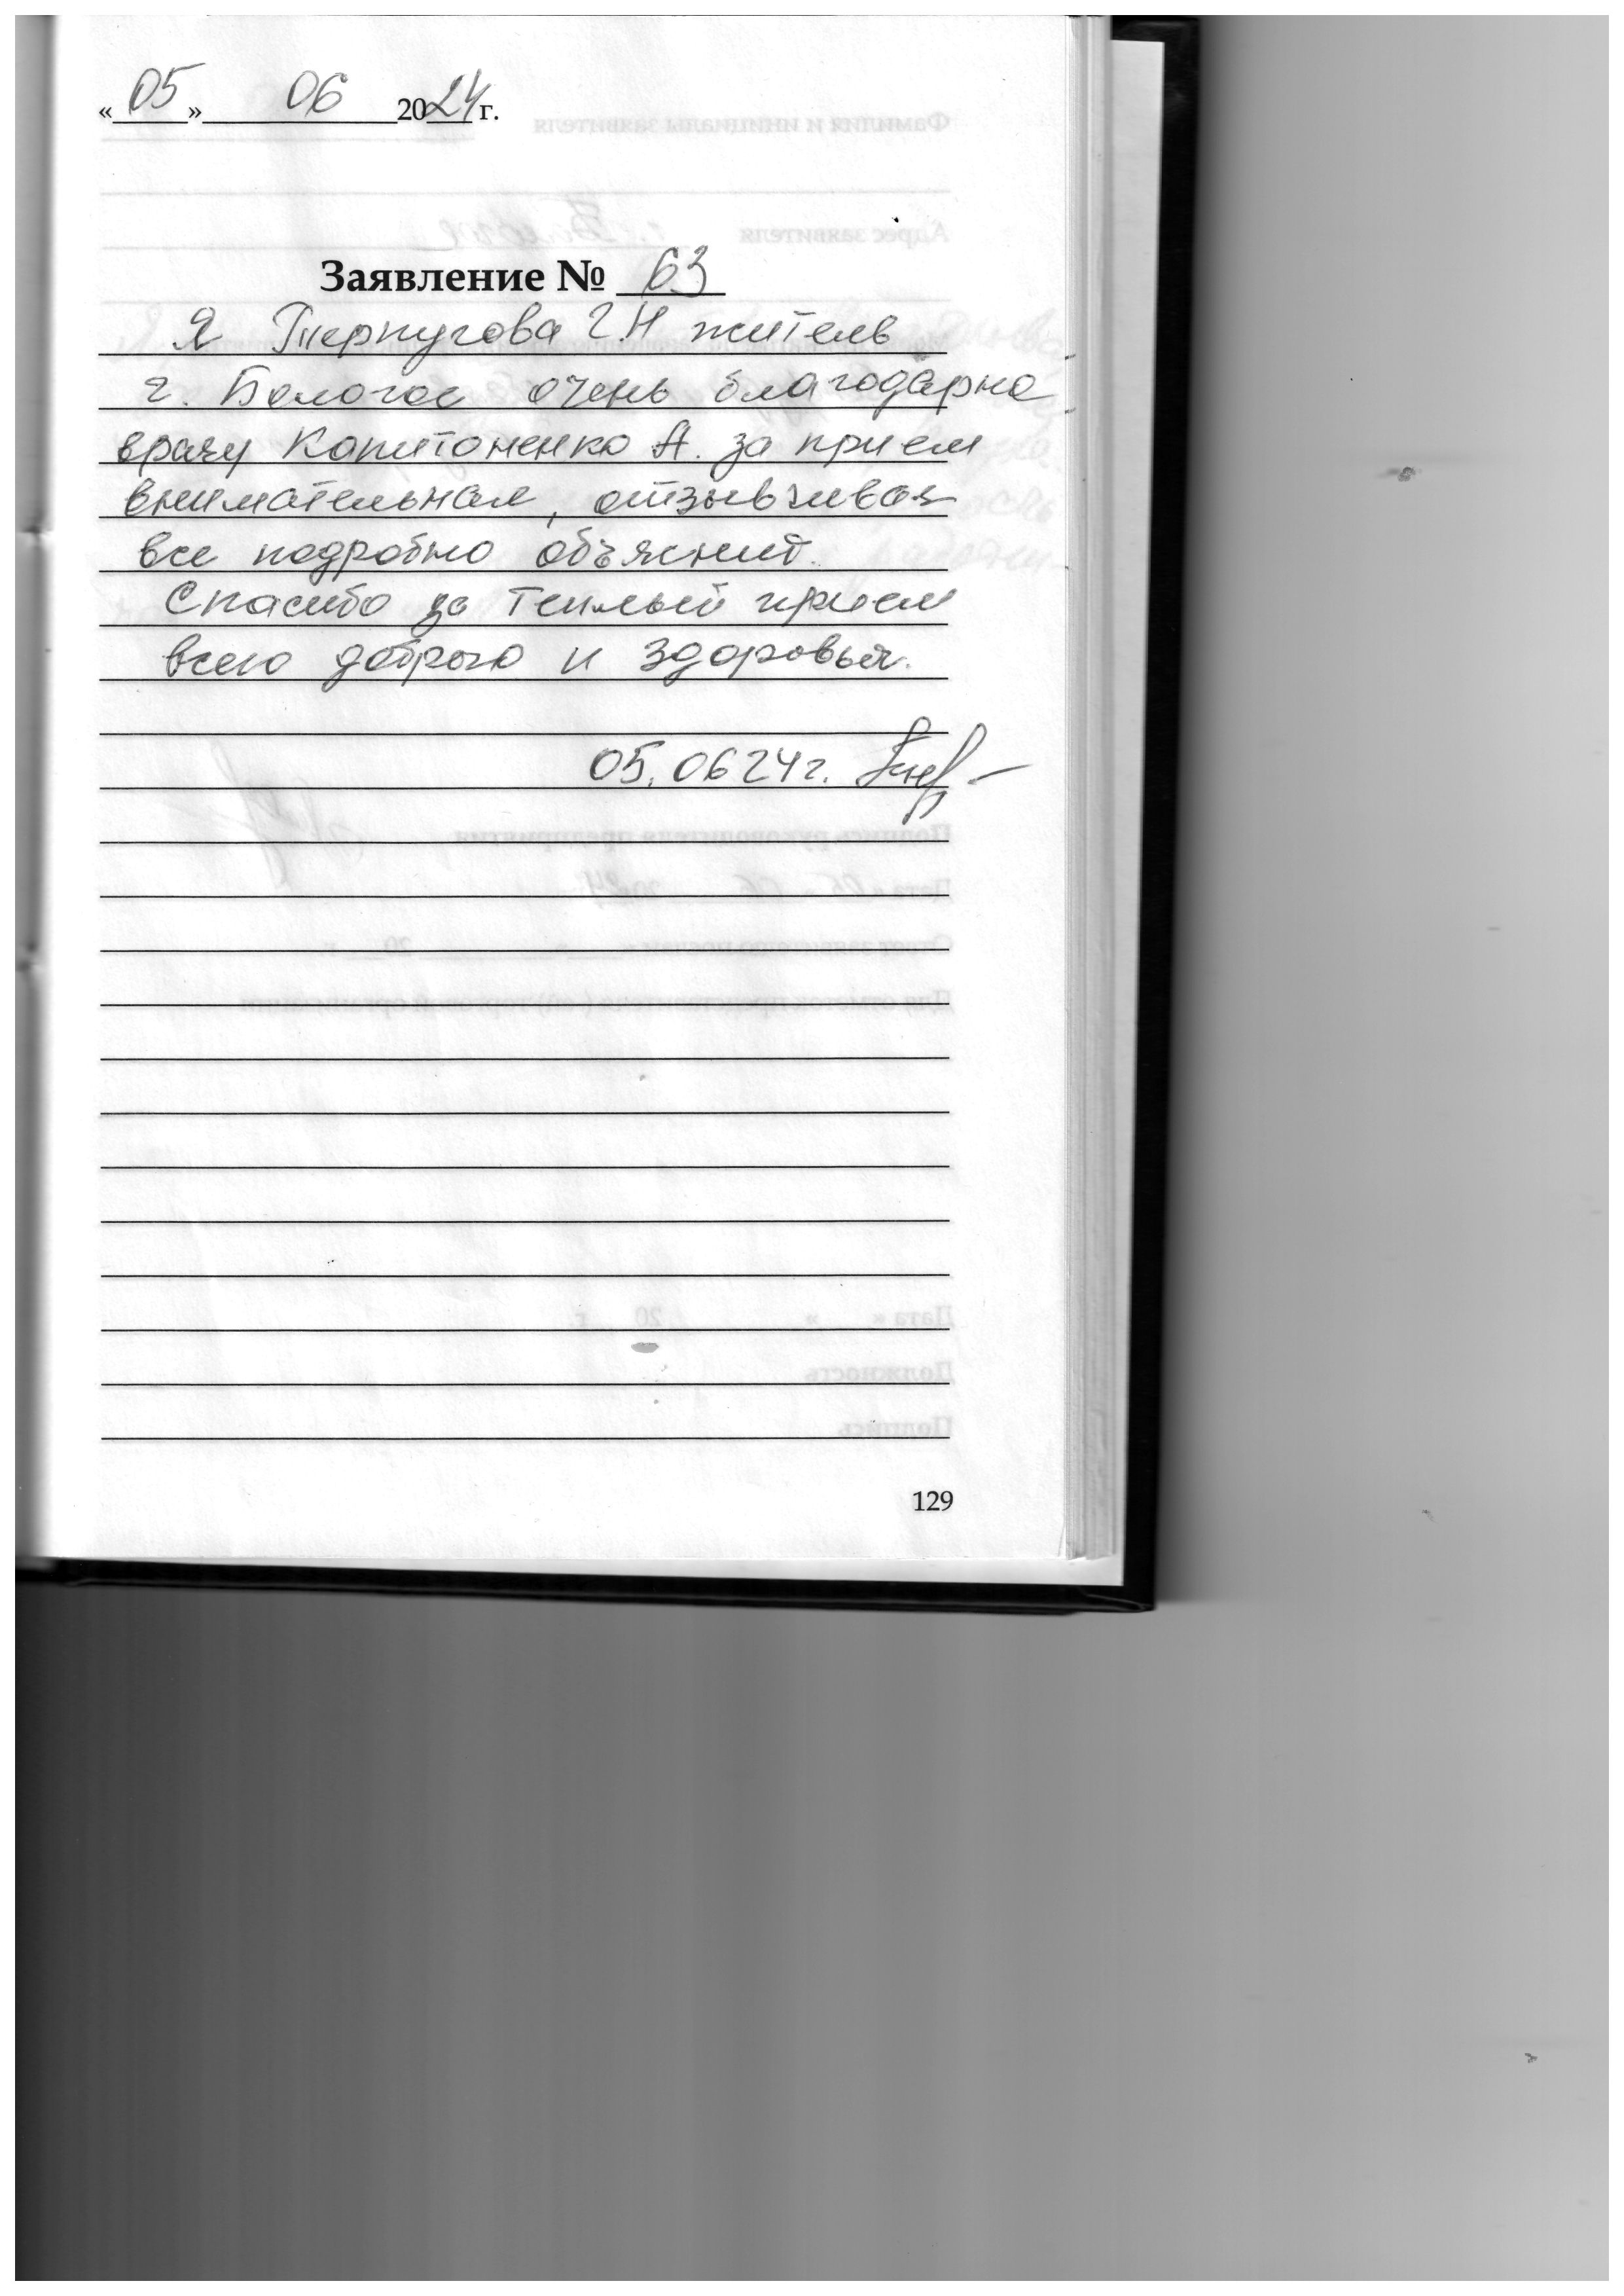 «05» 06 2024 г.
Заявление № 63
Я Терпугова Г.Н житель
г. Бологое очень благодарна
врачу Капитоненко А. за прием
внимательная, отзывчивая
все подробно объяснит.
Спасибо за теплый прием
всего доброго и здоровья.
05.06 24 г.
129